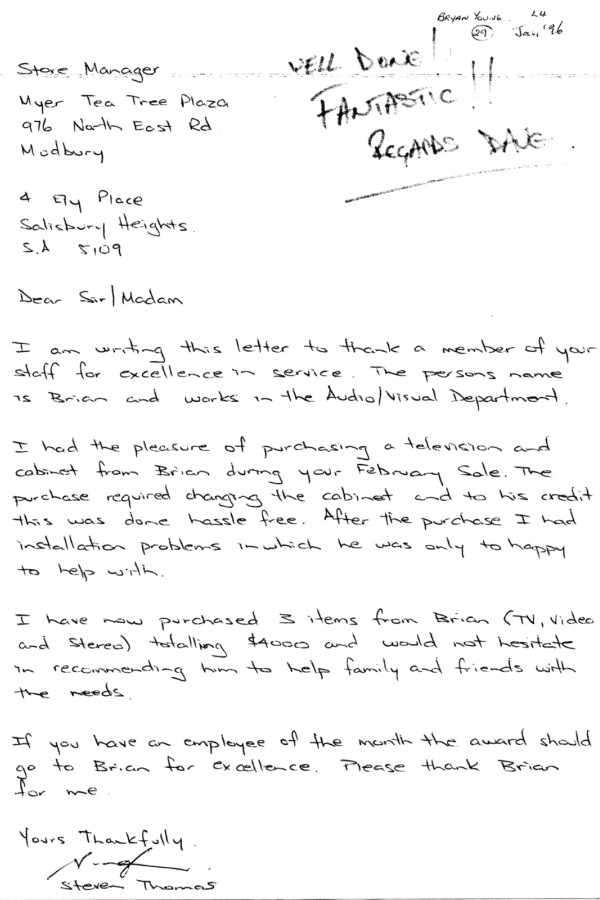 BRYAN YOUNG L4
29 Jan, '96
WELL DONE!!
FANTASTIC!!
REGARDS DAVE.
Store Manager
Myer Tea Tree Plaza
976 North East Rd
Modbury
4 Ely Place
Salisbury Heights.
S.A 5109
Dear Sir/Madam
I am writing this letter to thank a member of your
staff for excellence in service. The persons name
is Brian and works in the Audio/Visual Department.
I had the pleasure of purchasing a television and
cabinet from Brian during your February Sale. The
purchase required changing the cabinet and to his credit
this was done hassle free. After the purchase I had
installation problems in which he was only to happy
to help with.
I have now purchased 3 items from Brian (TV, Video
and Stereo) totalling $4000 and would not hesitate
in recommending him to help family and friends with
the needs.
If you have an employee of the month the award should
go to Brian for excellence. Please thank Brian
for me.
Yours Thankfully.
Steven Thomas